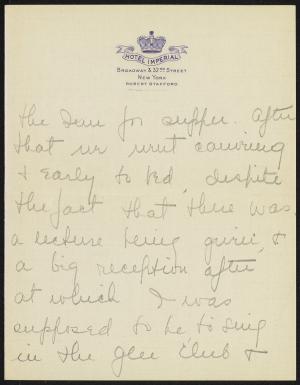 HOTEL IMPERIAL
BROADWAY & 32ND STREET
NEW YORK
ROBERT STAFFORD
the Dem for supper. After
that we went canoeing
& early to bed, despite
the fact that there was
a lecture being given, &
a big reception after
at which I was
supposed to be to sing
in the Glee Club &